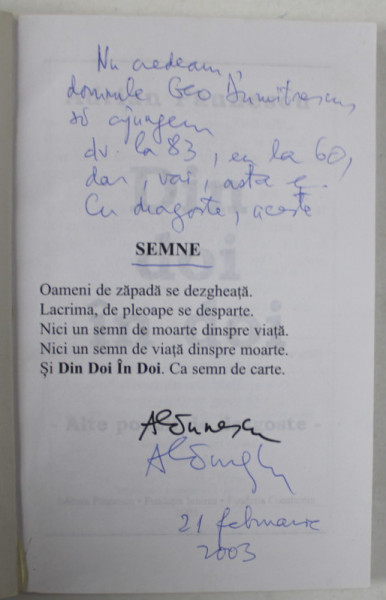 Nu credeam,
domnule Geo Dumitrescu,
să ajungem
dv. la 83, eu la 60,
dar, vai, asta e.
Cu dragoste, aceste
SEMNE
Oameni de zăpadă se dezgheață.
Lacrima, de pleoape se desparte.
Nici un semn de moarte dinspre viață.
Nici un semn de viață dinspre moarte.
Și Din Doi În Doi. Ca semn de carte.
21 februarie
2003